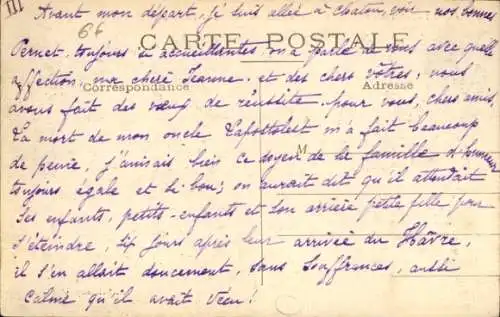 III
66
Avant mon départ, je suis allée à Chatou, voir nos bonnes
CARTE POSTALE
Pernet toujours si accueillantes, on a parlé de vous avec quelle
affection, ma chère Jeanne et des chers vôtres, nous
Correspondance
Adresse
avons fait des vœux de réussite pour vous, chers amis
La mort de mon oncle m'a fait beaucoup
M
de peine, j'aimais bien ce doyen de la famille d'humeur
toujours égale et si bon; on aurait dit qu'il attendait
ses enfants, petits-enfants et son arrière petite fille pour
s'éteindre, six jours après leur arrivée du Hâvre,
il s'en allait doucement, sans souffrances, aussi
calme qu'il avait vécu!